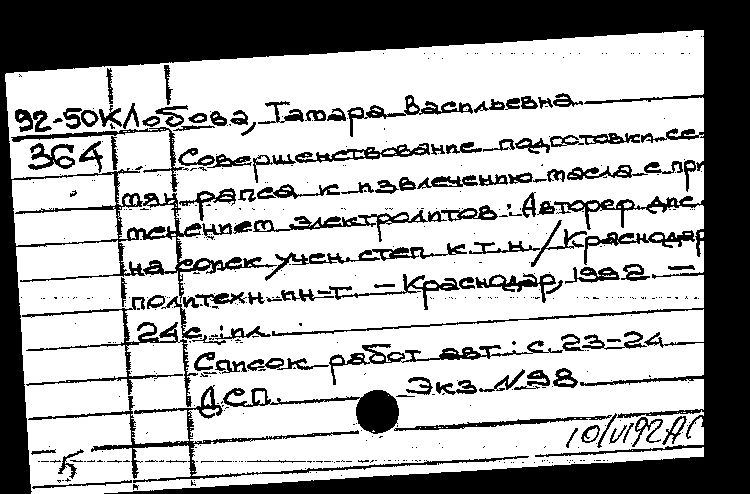 92-50К Лобова, Тамара Васильевна
364 Совершенствование подготовки се-
мян рапса к извлечению масла с при
менением электролитов : Автореф. дис.
на соиск. учен. степ. к.т.н. / Краснодар
политехн. ин-т. — Краснодар, 1992. —
24 с. : ил.
Список работ авт.: с. 23-24
ДСП. Экз. №98.
10/VI92АС
5